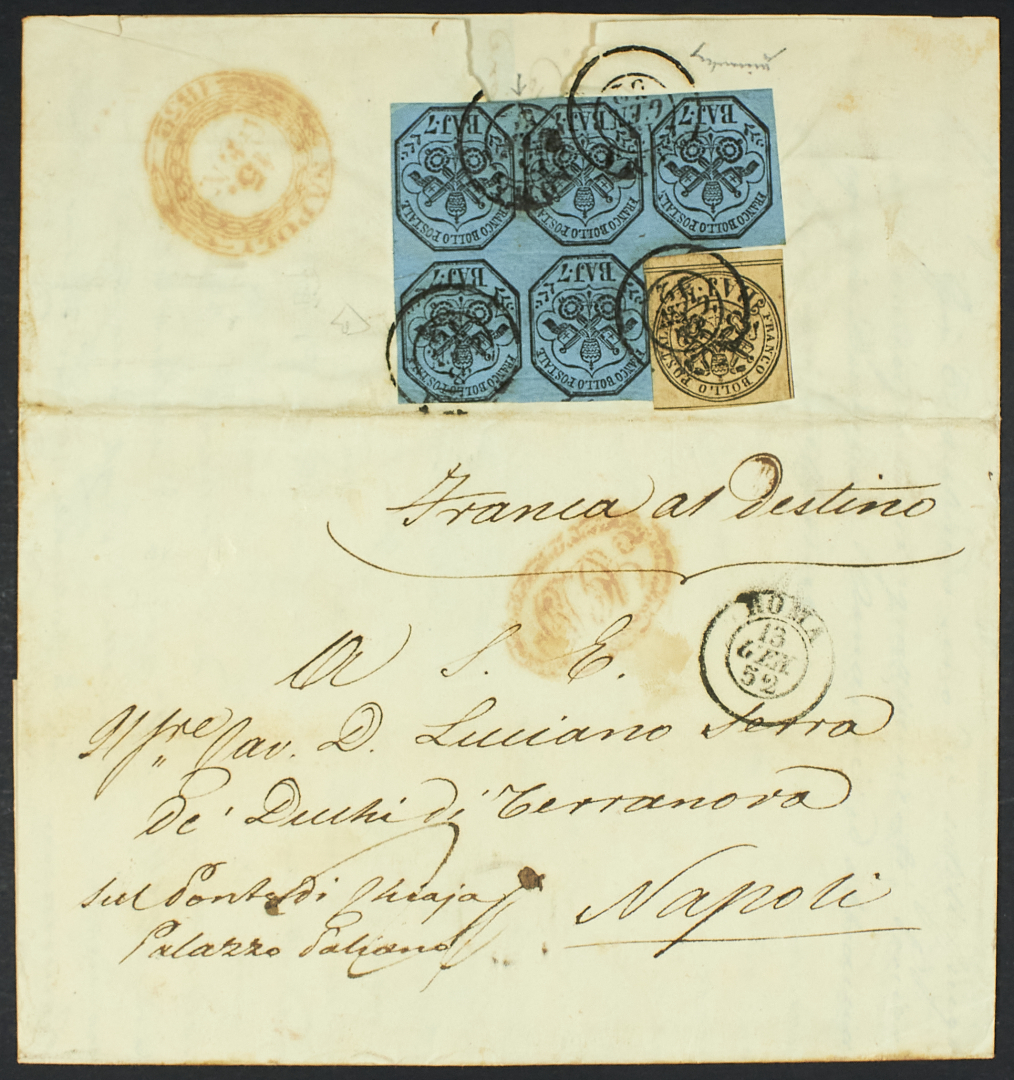 NAPOLI
1852
15
BAJ·7
BAJ·7
BAJ·7
FRANCO BOLLO POSTALE
FRANCO BOLLO POSTALE
FRANCO BOLLO POSTALE
GEN
BAJ·7
BAJ·7
FRANCO BOLLO POSTALE
FRANCO BOLLO POSTALE
FRANCO BOLLO POSTALE
Franca al Destino
ROMA
13
GEN
52
A S. E.
D. Luciano Serra
de' Duchi di Terranova
sul Ponte di Chiaja
Palazzo
Napoli